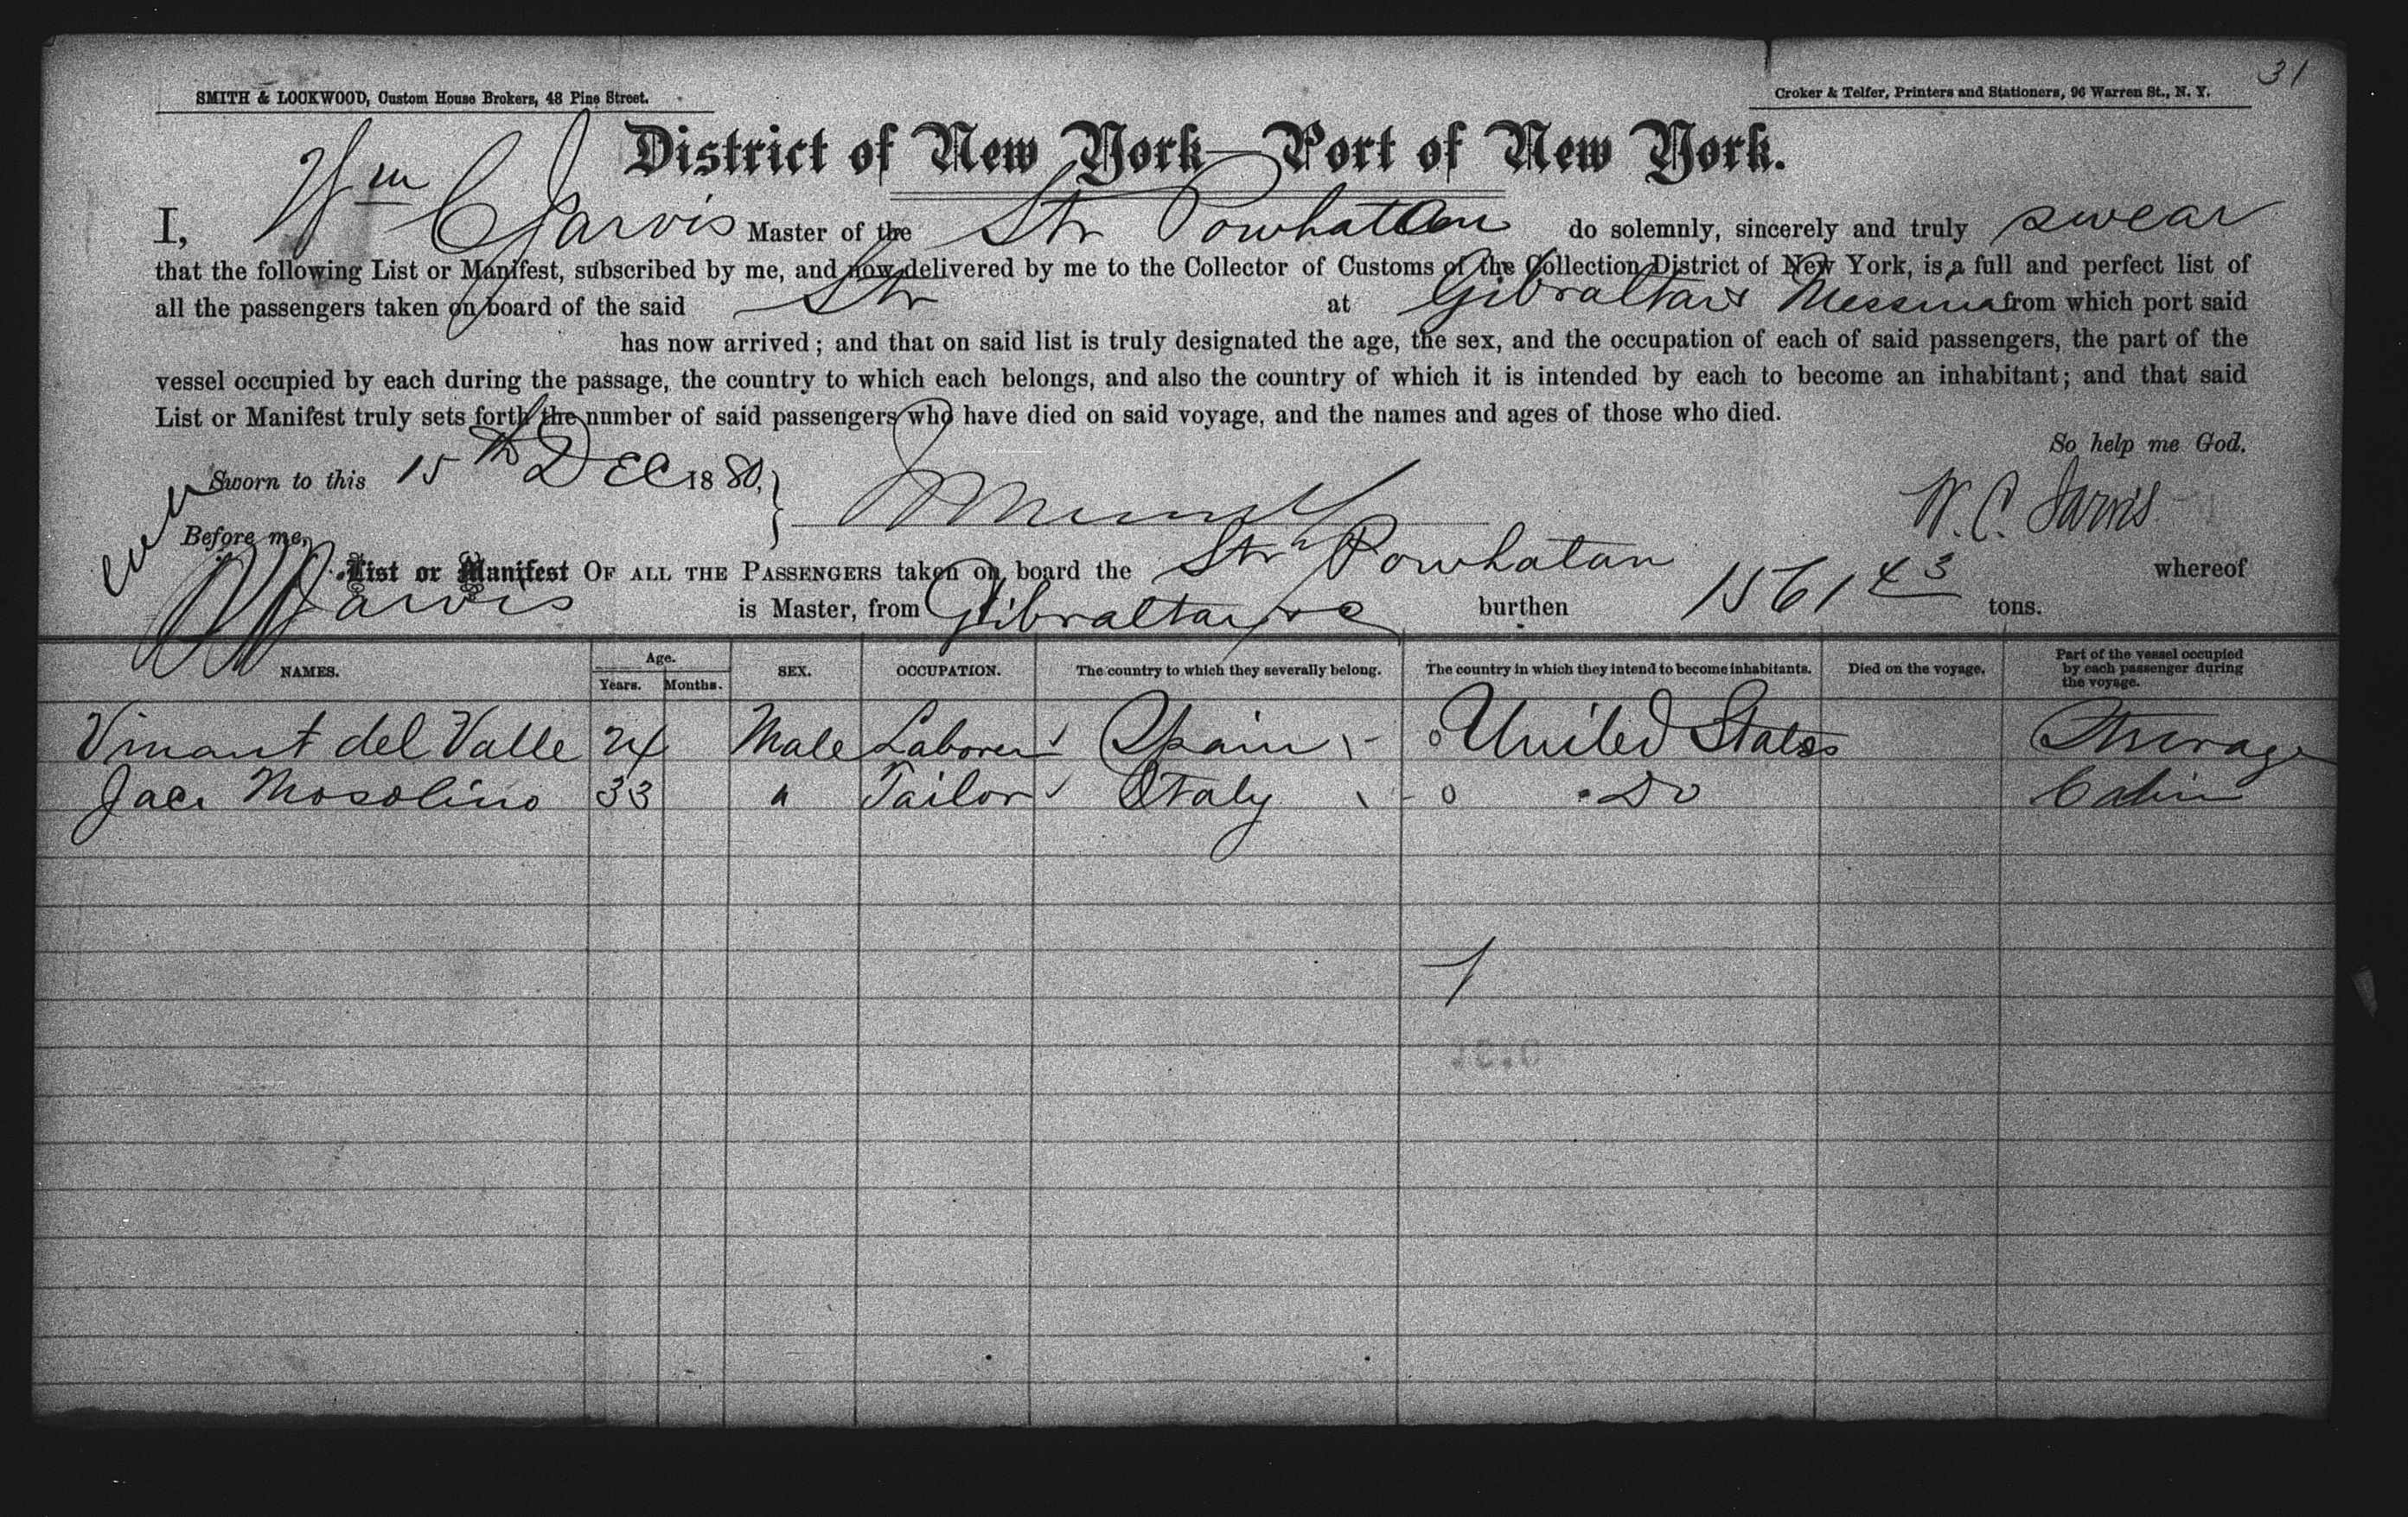 31
SMITH & LOCKWOOD, Custom House Brokers, 48 Pine Street.
Croker & Telfer, Printers and Stationers, 96 Warren St., N. Y.
District of New York—Port of New York.
I, Wm C Jarvis Master of the Str Powhatan do solemnly, sincerely and truly swear
that the following List or Manifest, subscribed by me, and now delivered by me to the Collector of Customs of the Collection District of New York, is a full and perfect list of
all the passengers taken on board of the said Str at Gibraltar & Messina from which port said
has now arrived; and that on said list is truly designated the age, the sex, and the occupation of each of said passengers, the part of the
vessel occupied by each during the passage, the country to which each belongs, and also the country of which it is intended by each to become an inhabitant; and that said
List or Manifest truly sets forth the number of said passengers who have died on said voyage, and the names and ages of those who died.
So help me God.
Sworn to this 15th Dec 1880,
W. C. Jarvis
Before me,
List or Manifest OF ALL THE PASSENGERS taken on board the Str Powhatan whereof
Jarvis is Master, from Gibraltar &c burthen 1561 43 tons.
NAMES. Age. Years. Months. SEX. OCCUPATION. The country to which they severally belong. The country in which they intend to become inhabitants. Died on the voyage. Part of the vessel occupied by each passenger during the voyage.
del Valle 24 Male Laborer Spain United States Steerage
Mosolino 33 " Tailor Italy Do Cabin